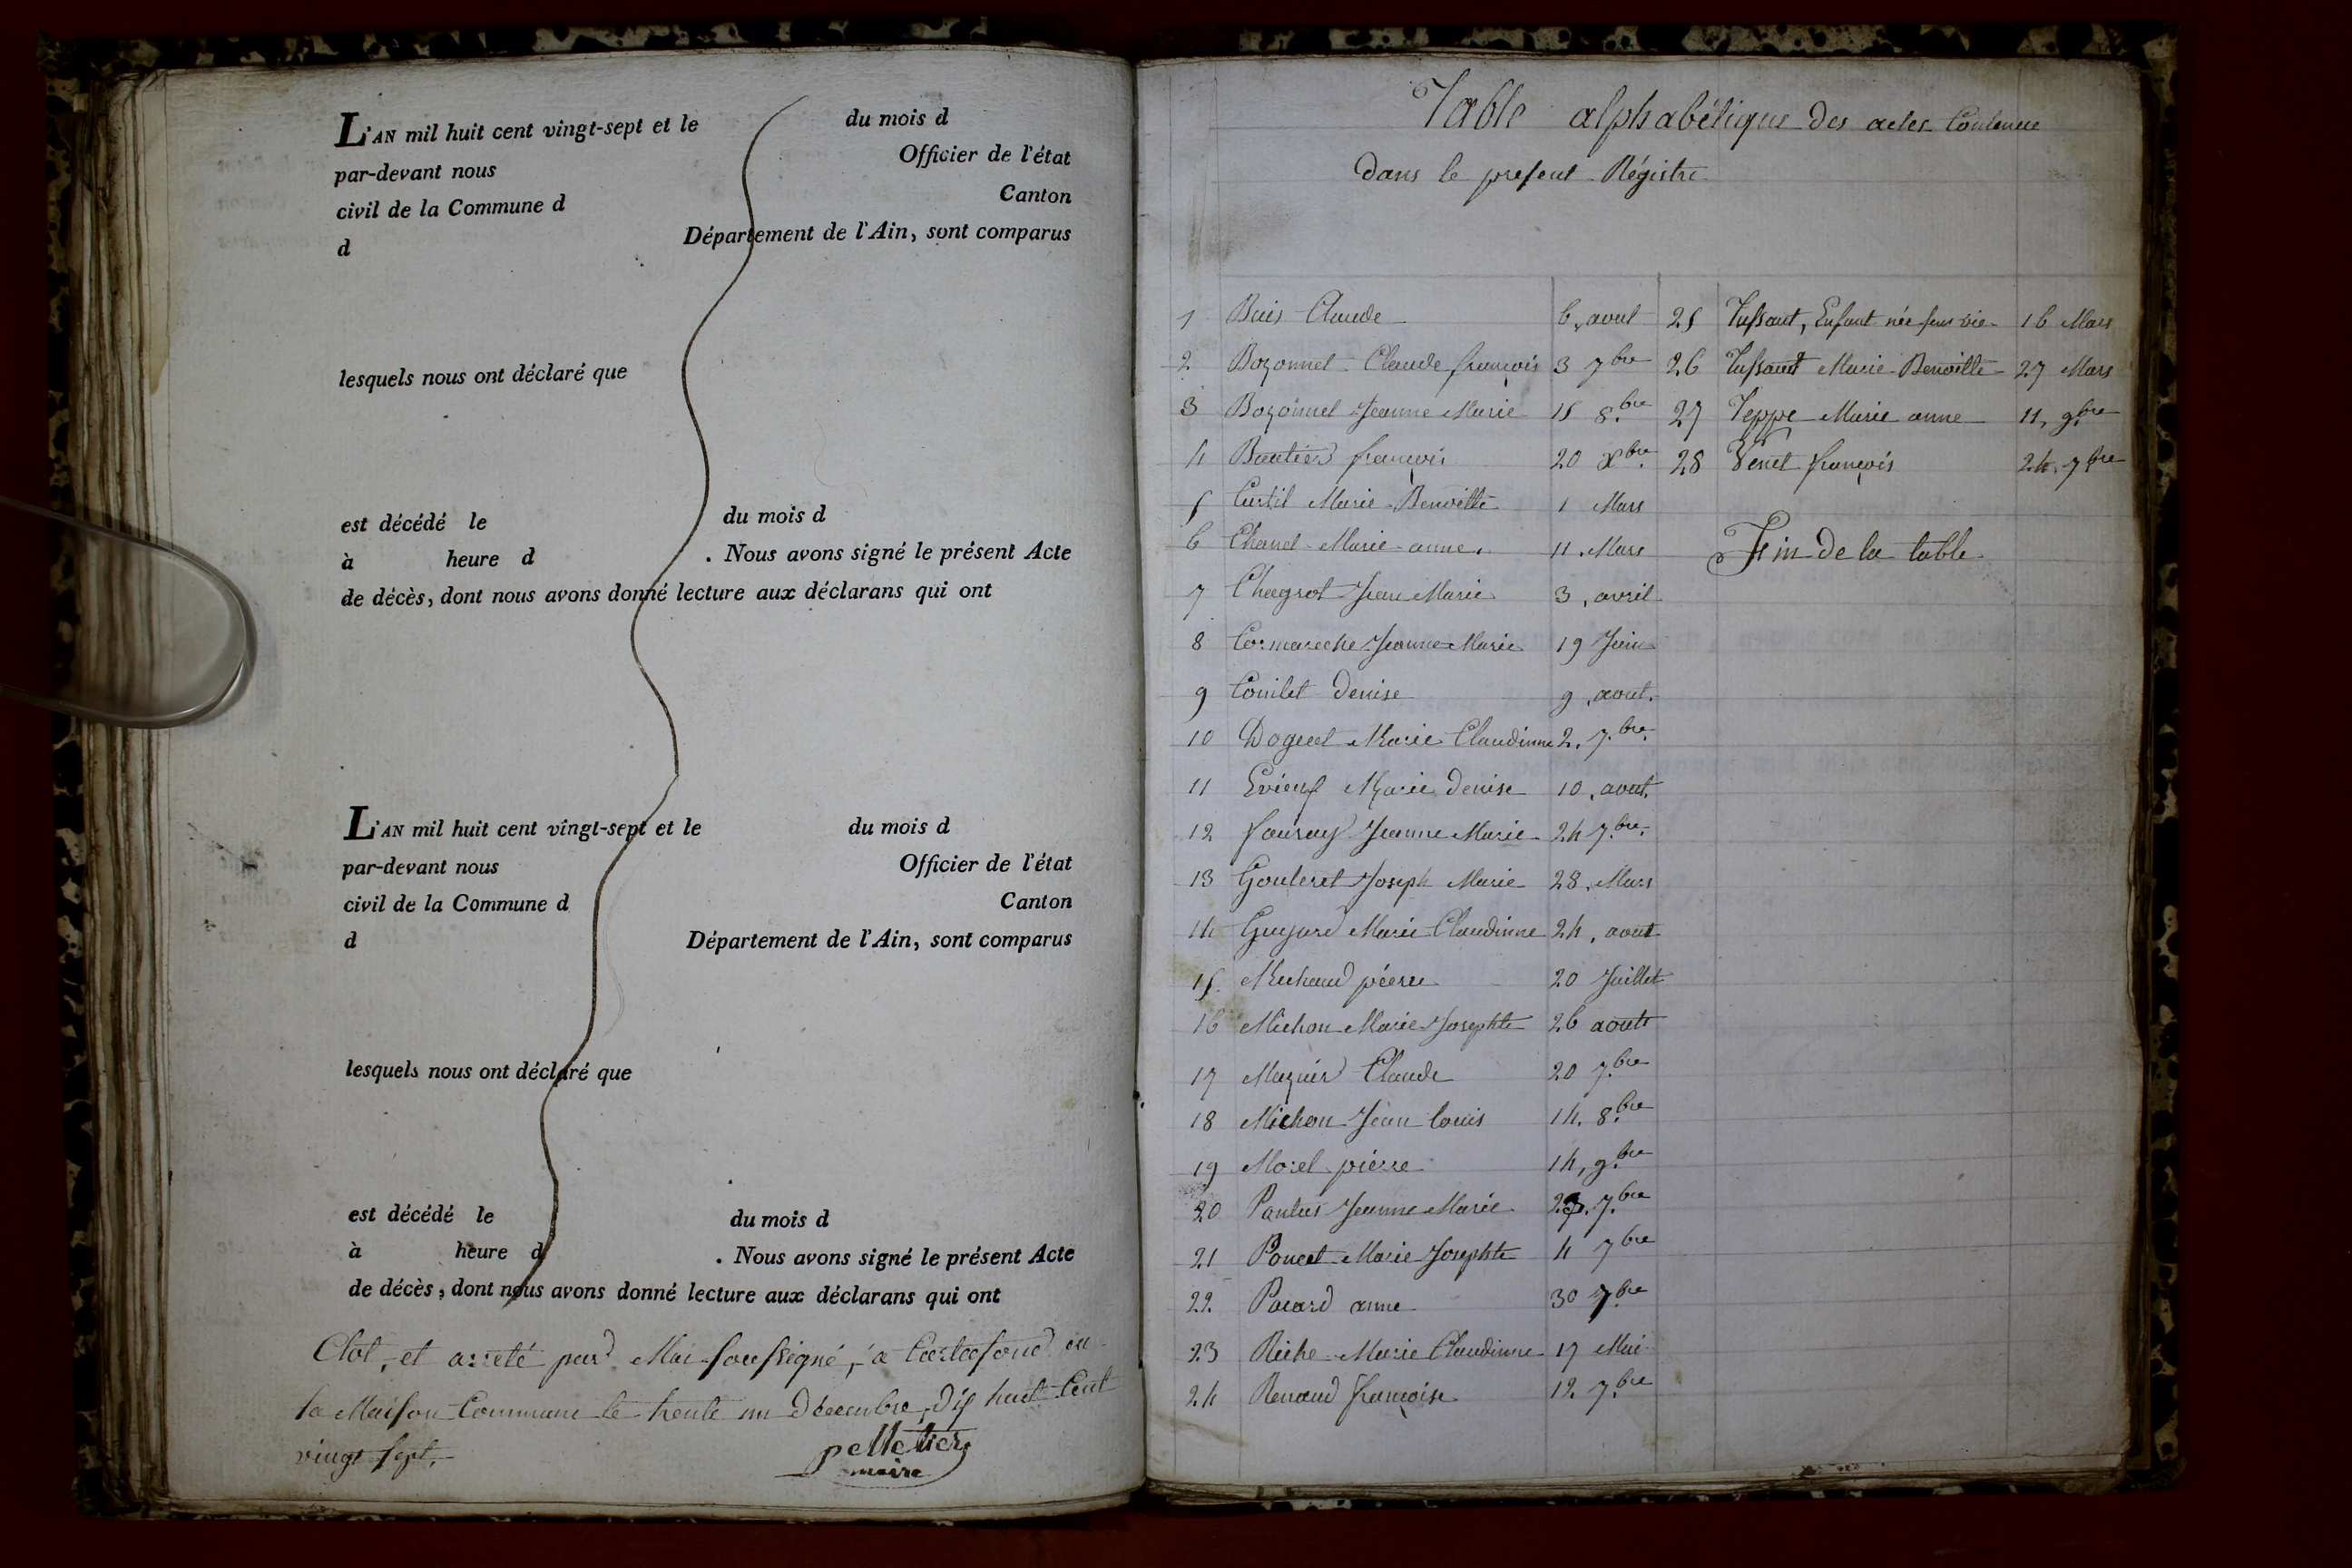 L'AN mil huit cent vingt-sept et le du mois d
par-devant nous Officier de l'état
civil de la Commune d Canton
d Département de l'Ain, sont comparus
lesquels nous ont déclaré que
est décédé le du mois d
à heure d . Nous avons signé le présent Acte
de décès, dont nous avons donné lecture aux déclarans qui ont
L'AN mil huit cent vingt-sept et le du mois d
par-devant nous Officier de l'état
civil de la Commune d Canton
d Département de l'Ain, sont comparus
lesquels nous ont déclaré que
est décédé le du mois d
à heure d . Nous avons signé le présent Acte
de décès, dont nous avons donné lecture aux déclarans qui ont
Clot, et arreté par Moi soussigné, a en
la Maison Commune le trente un Decembre, dix huit Cent
vingt sept.
pelletier
maire
Table alphabétique des actes Contenue
dans le present Régistre
1 Buis Claude 6, aout
2 Bozonnet Claude françois 3 7bre
3 Bozonnet Jeanne Marie 15 8.bre
4 françois 20 Xbre
5 Curtil Marie Benoitte 1 Mars
6 Chanel Marie anne. 11. Mars
7 Jean Marie 3, avril
8 Cormareche Jeanne Marie 19 Juin
9 denise 9, aout.
10 Marie Claudinne 2. 7.bre
11 Marie denise 10, aout.
12 Jeanne Marie 24 7.bre
13 Joseph Marie 28. Mars
14 Guyard Marie Claudinne 24, aout
15 Michaud piérre 20 Juillet
16 Michon Marie Josephte 26 aout
17 Claude 20 7.bre
18 Michon Jean louis 14. 8.bre
19 Morel piérre 14, 9.bre
20 Jeanne Marie 7.bre
21 Poncet Marie Josephte 4 7bre
22 Pacard anne 30 7.bre
23 Riche Marie Claudinne 17 Mai
24 Renaud françoise 12. 7.bre
25 Tissant, Enfant née sans vie 16 Mars
26 Tissant Marie Benoitte 27 Mars
27 Teppe Marie anne 11, 9.bre
28 Venet françois 24. 7bre
Fin de la table